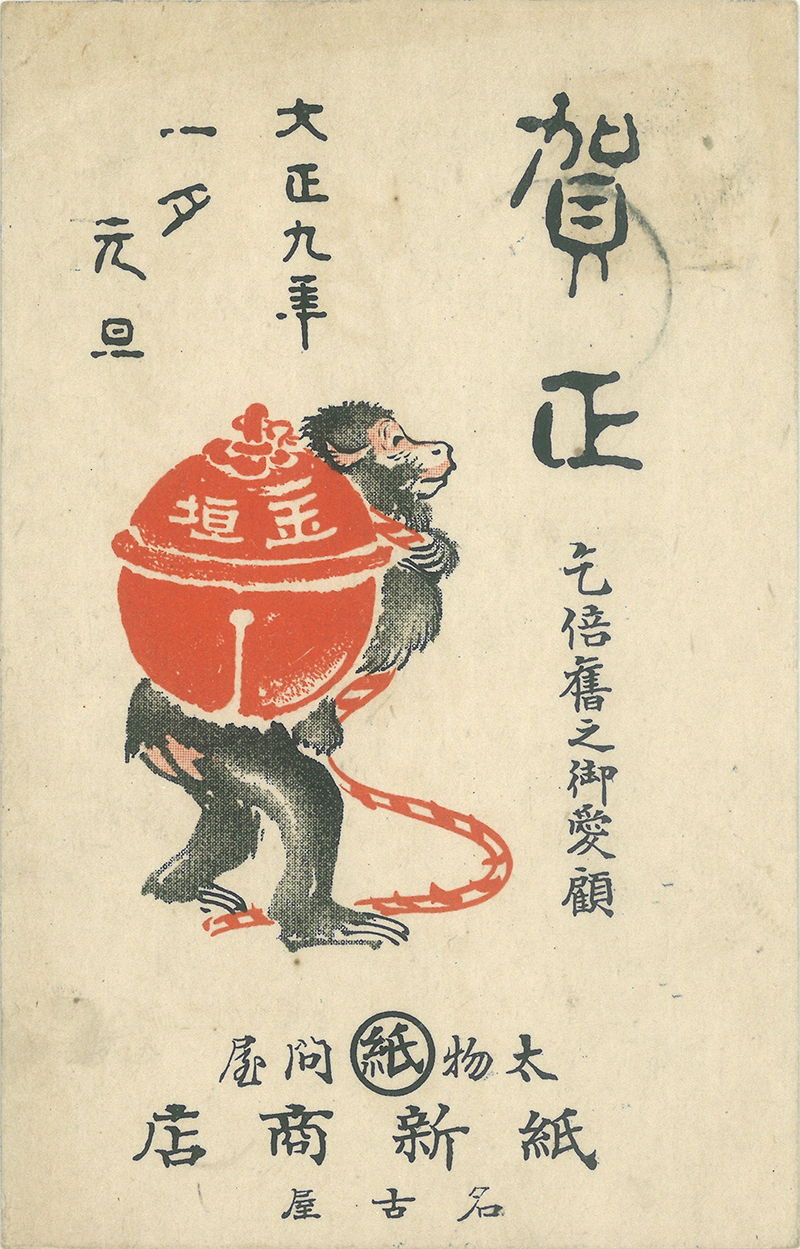 賀正
乞倍舊之御愛顧
大正九年
一月
元旦
玉垣
太物㊗問屋
紙新商店
名古屋